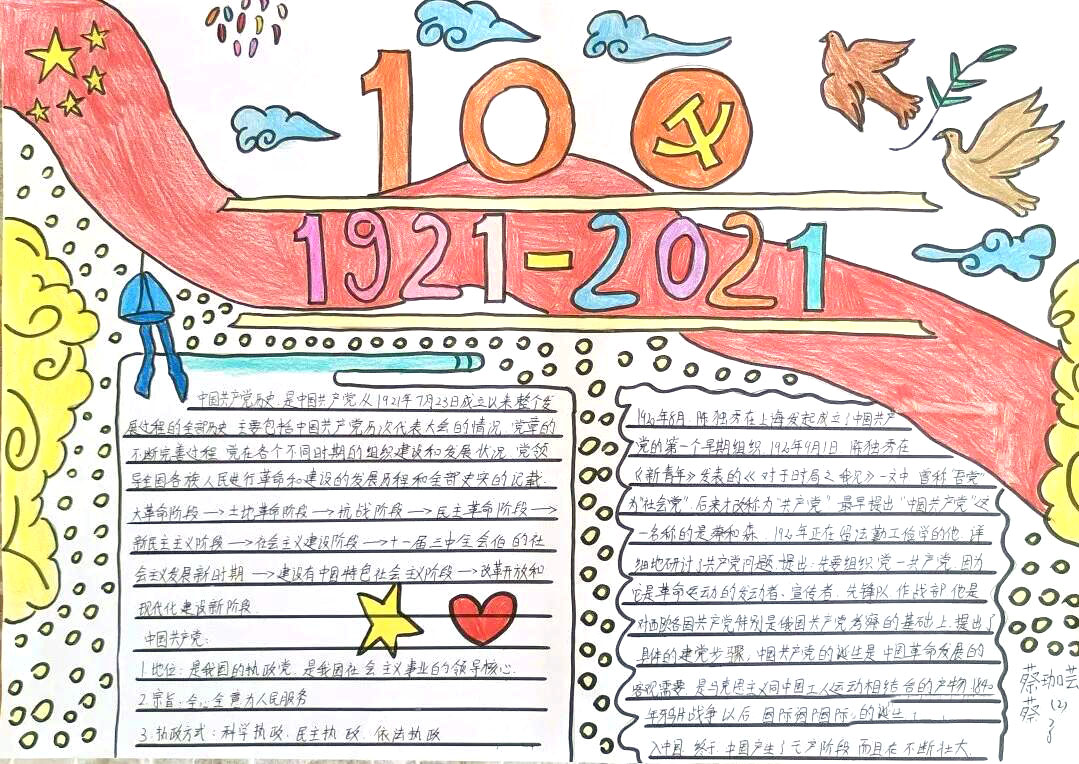 100
1921-2021
中国共产党历史,是中国共产党从1921年7月23日成立以来整个发
展过程的全部历史.主要包括中国共产党历次代表大会的情况,党章的
不断完善过程,党在各个不同时期的组织建设和发展状况,党领
导全国各族人民进行革命和建设的发展历程和全部史实的记载.
大革命阶段→土地革命阶段→抗战阶段→民主革命阶段→
新民主主义阶段→社会主义建设阶段→十一届三中全会后的社
会主义发展新时期→建设有中国特色社会主义阶段→改革开放和
现代化建设新阶段.
中国共产党:
1.地位:是我国的执政党,是我国社会主义事业的领导核心.
2.宗旨:全心全意为人民服务
3.执政方式:科学执政、民主执政、依法执政
陈独秀在上海发起成立了中国共产
党的第一个早期组织.9月1日,陈独秀在
《新青年》发表的《对于时局之我见》一文中,曾称"吾党"
为"社会党",后来才改称为"共产党".最早提出"中国共产党"这
一名称的是蔡和森.正在留法勤工俭学的他,详
细地研讨了共产党问题,提出:先要组织党—共产党.因为
它是革命运动的发动者、宣传者、先锋队、作战部.他是
对西欧各国共产党特别是俄国共产党考察的基础上,提出了
具体的建党步骤,中国共产党的诞生是中国革命发展的
客观需要,是马克思主义同中国工人运动相结合的产物.1840
年鸦片战争以后
入中国,中国产生了无产阶段而且在不断壮大.
蔡珈芸
蔡
(2)